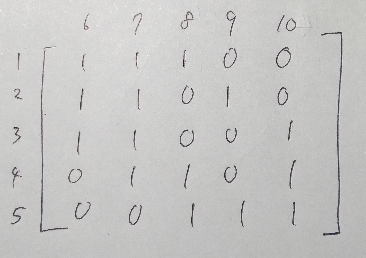 6 7 8 9 10
1 1 1 1 0 0
2 1 1 0 1 0
3 1 1 0 0 1
4 0 1 1 0 1
5 0 0 1 1 1